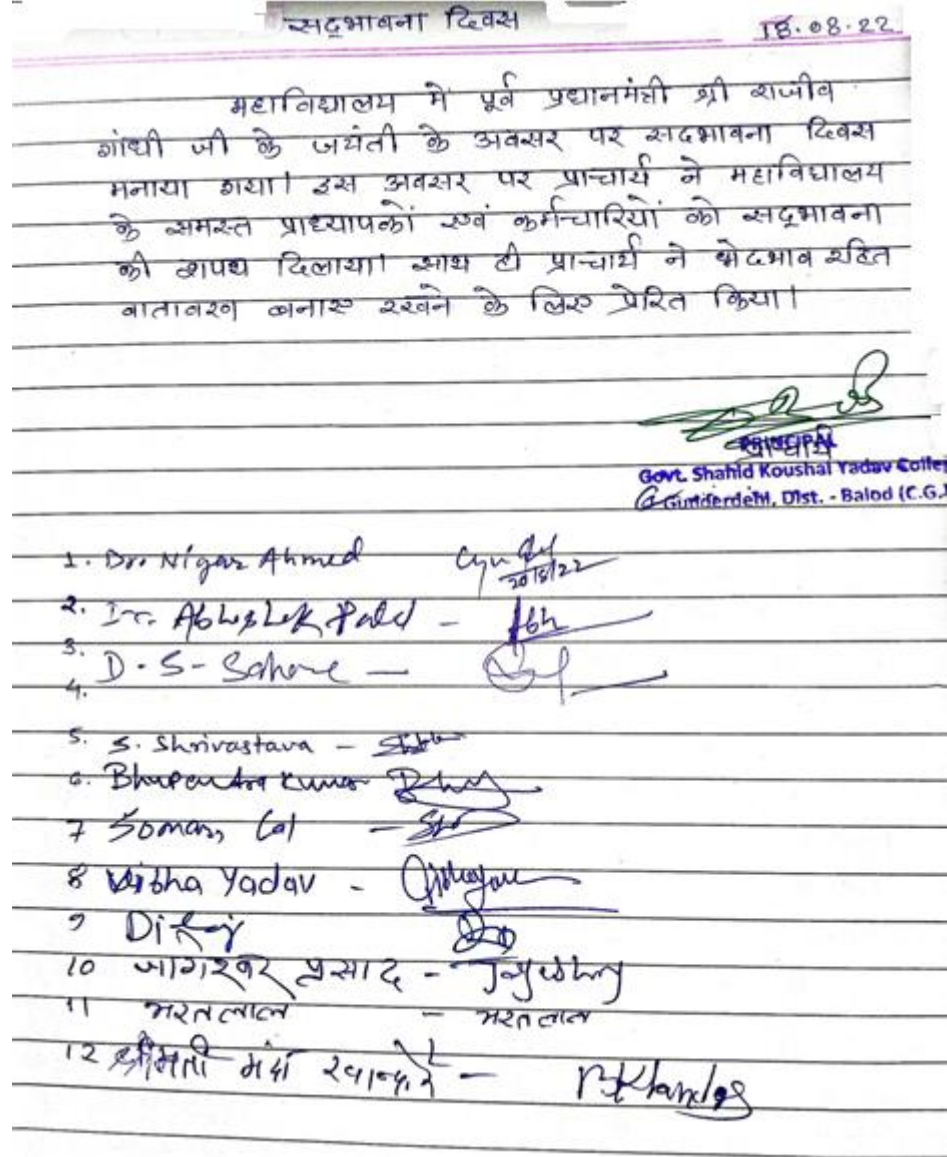 सद्भावना दिवस
18.08.22
महाविद्यालय में पूर्व प्रधानमंत्री श्री राजीव
गांधी जी के जयंती के अवसर पर सदभावना दिवस
मनाया गया। इस अवसर पर प्राचार्य ने महाविद्यालय
के समस्त प्राध्यापकों एवं कर्मचारियों को सद्भावना
की शपथ दिलाया। साथ ही प्राचार्य ने भेदभाव रहित
वातावरण बनाए रखने के लिए प्रेरित किया।
PRINCIPAL
प्राचार्य
Govt. Shahid Koushal Yadav Colle
Gunderdehi, Dist. - Balod (C.G.)
1. Dr. Nigar Ahmed 20/8/22
2. Dr. Abhishek Patel - Abh
3. D.S. Sahare -
4.
5. S. Shrivastava -
6. Bhupendra Kumar
7 Soman Lal -
8 Vibha Yadav -
9
10 जागेश्वर प्रसाद -
11 भरतलाल - भरतलाल
12 श्रीमती -